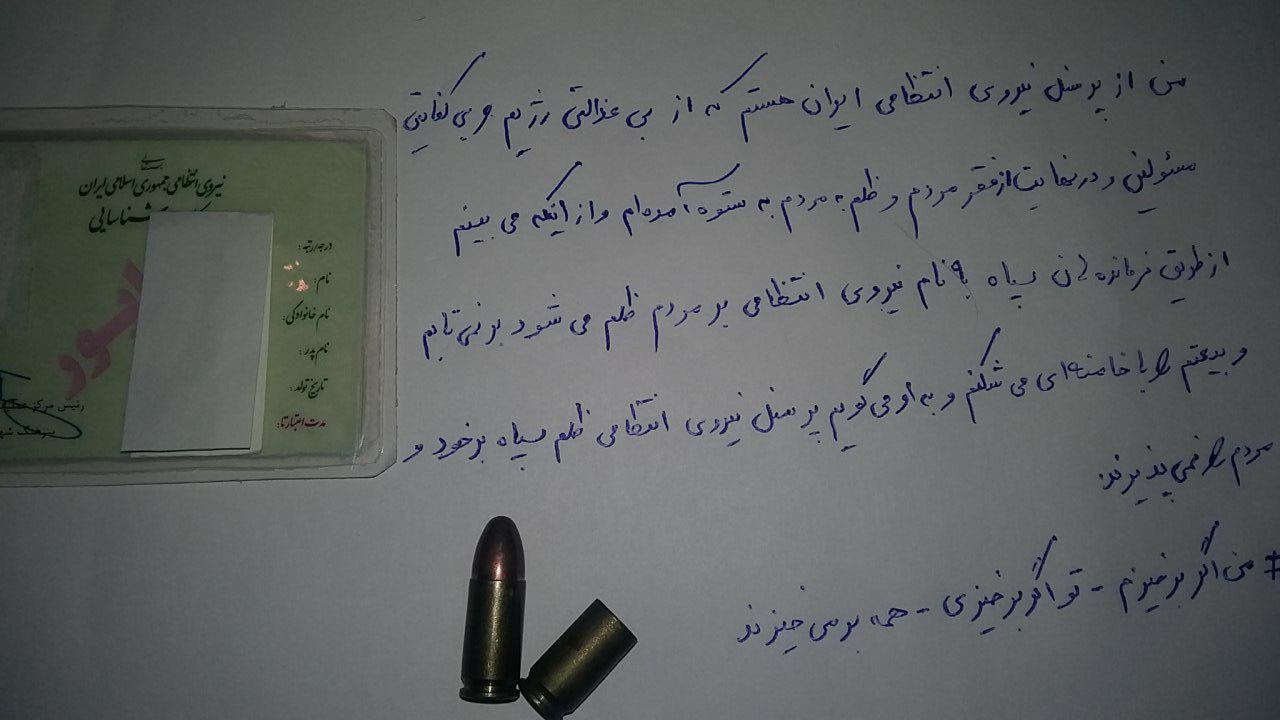 من از پرسنل نیروی انتظامی ایران هستم که از بی عدالتی رژیم و بی کفایتی
مسئولین و در نهایت از فقر مردم و ظلم به مردم به ستوه آمده‌ام و از اینکه می بینم
از طریق فرماندهان سپاه با نام نیروی انتظامی بر مردم ظلم می شود بر نمی تابم
و بیعتم را با خامنه‌ای می شکنم و به او می گویم پرسنل نیروی انتظامی ظلم سپاه بر خود و
مردم را نمی پذیرند.
# من اگر برخیزم - تو اگر برخیزی - همه برمی خیزند
نیروی انتظامی جمهوری اسلامی ایران
شناسایی
درجه/رتبه:
نام:
نام خانوادگی:
نام پدر:
تاریخ تولد:
مدت اعتبار تا:
رئیس مرکز